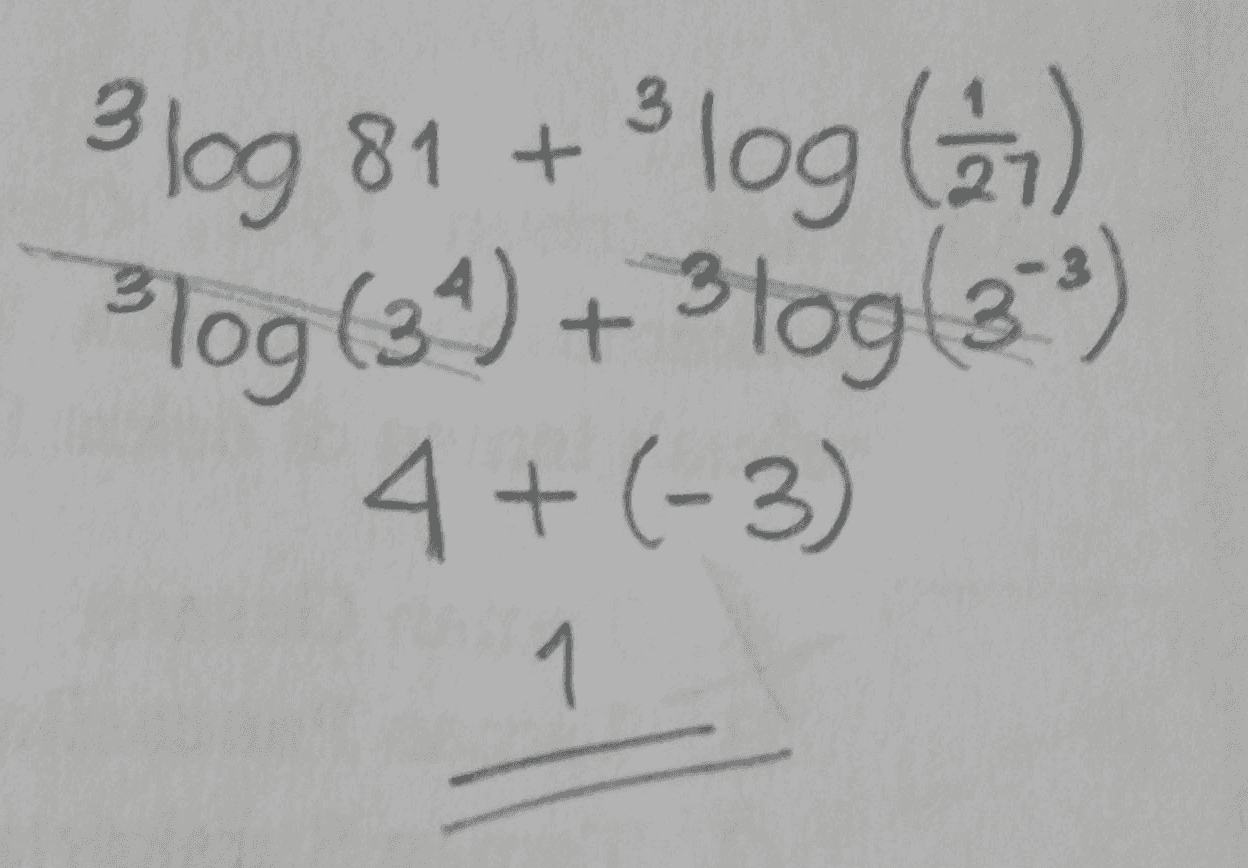 ³log 81 + ³log (1/27)
³log (3⁴) + ³log (3⁻³)
4 + (-3)
1